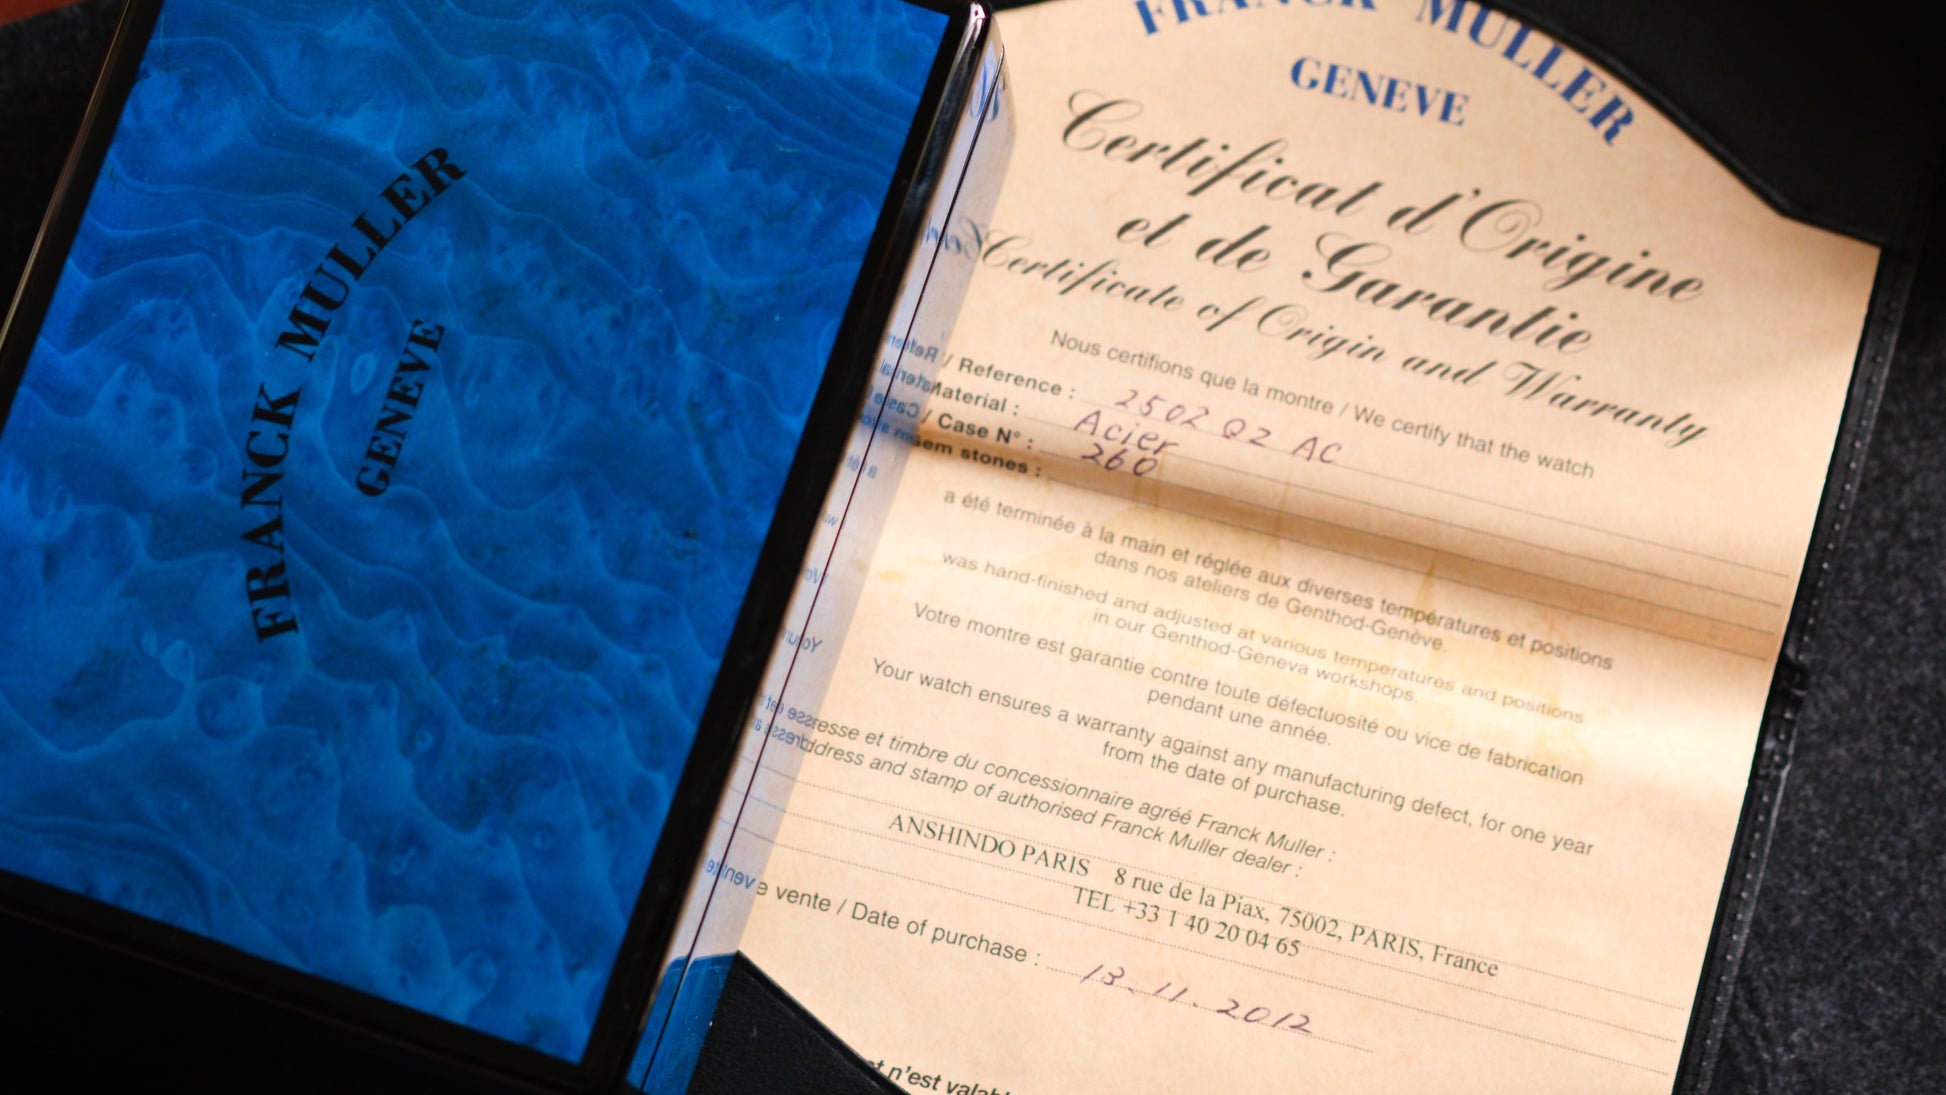 FRANCK MULLER
GENEVE
FRANCK MULLER
GENEVE
Certificat d'Origine
et de Garantie
Certificate of Origin and Warranty
Nous certifions que la montre / We certify that the watch
/ Reference : 2502 QZ AC
Material : Acier
/ Case N° : 260
stones :
a été terminée à la main et réglée aux diverses températures et positions
dans nos ateliers de Genthod-Genève.
was hand-finished and adjusted at various temperatures and positions
in our Genthod-Geneva workshops.
Votre montre est garantie contre toute défectuosité ou vice de fabrication
pendant une année.
Your watch ensures a warranty against any manufacturing defect, for one year
from the date of purchase.
et timbre du concessionnaire agréé Franck Muller :
and stamp of authorised Franck Muller dealer :
ANSHINDO PARIS 8 rue de la Piax, 75002, PARIS, France
TEL +33 1 40 20 04 65
vente / Date of purchase : 13.11.2012
n'est